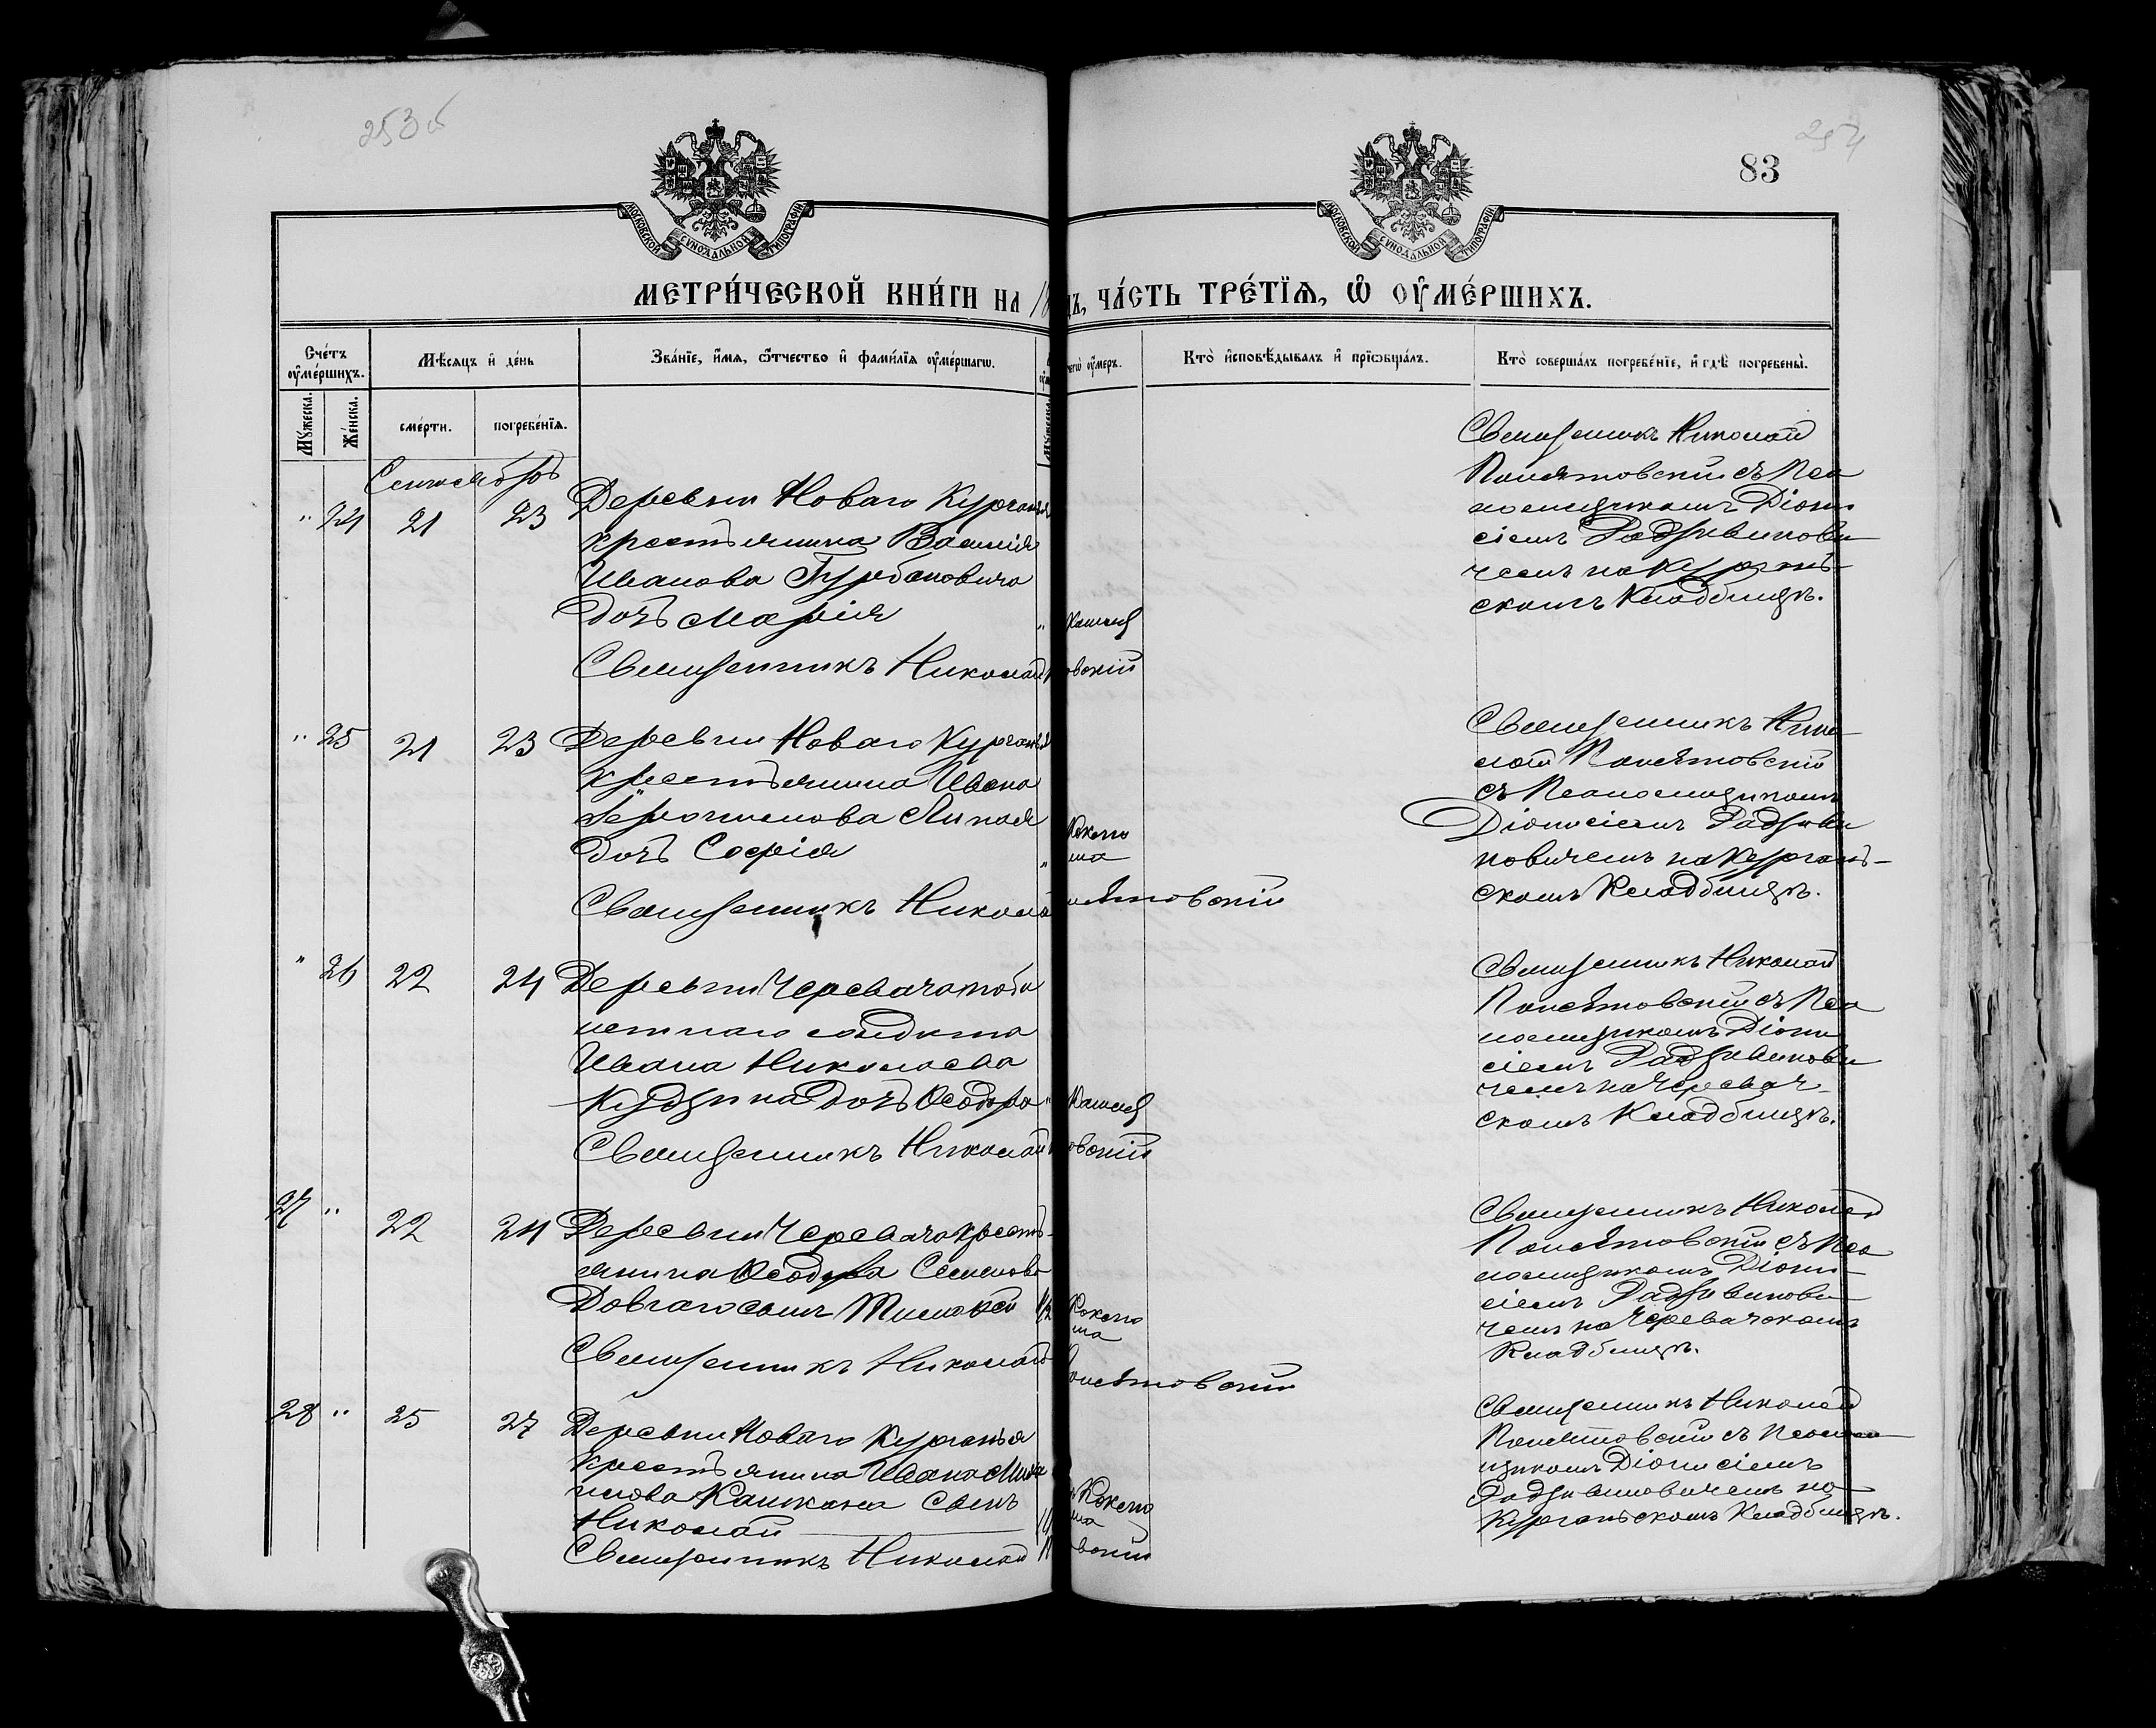 253об
254
83
МОСКОВСКОЙ СѴНОДАЛЬНОЙ ТИПОГРАФІИ
МОСКОВСКОЙ СѴНОДАЛЬНОЙ ТИПОГРАФІИ
МЕТРИ́ЧЕСКОЙ КНИ́ГИ НА 18
ДЪ, ЧА́СТЬ ТРЕ́ТЇѦ, Ѡ҆ ОУ҆МЕ́РШИХЪ.
Сче́тъ оу҆ме́ршихъ.
Мѣ́сяцъ и҆ де́нь
Зва́нїе, и҆́мѧ, ѻ҆́тчество и҆ фами́лїѧ оу҆ме́ршагѡ.
чегѡ̀ оу҆́меръ.
Кто̀ и҆сповѣ́дывалъ и҆ прїѡбща́лъ.
Кто̀ соверша́лъ погребе́нїе, и҆ гдѣ̀ погребены̀.
Мꙋ́жеска.
Же́нска.
сме́рти.
погребе́нїѧ.
Сентябрь
" 24 21 23 Деревни Новаго Курганья
крестьянина Василія
Иванова Гурбановича
дочь Марія
" Кашель
Священникъ Николай
овскій
Священникъ Николай
Понятовскій съ Пса
ломщикомъ Діони
сіемъ Радзивинови
чемъ на Курганъ-
скомъ Кладбищѣ.
" 25 21 23 Деревни Новаго Курганья
крестьянина Ивана
дочь Софія
" Коклю
ша
Священникъ Николай
нятовскій
Священникъ Нико
лай Понятовскій
съ Псаломщикомъ
Діонисіемъ Радзиви
новичемъ на Курганъ-
скомъ Кладбищѣ.
" 26 22 24 Деревни Черевача
солдата
Ивана Николаева
дочь Ѳеодора " Кашель
Священникъ Николай
овскій
Священникъ Николай
Понятовскій съ Пса
ломщикомъ Діони
сіемъ Радзивинови
чемъ на Черевач-
скомъ Кладбищѣ.
27 " 22 24 Деревни Черевача кресть-
янина Ѳеодора Семенова
Довгаго сынъ Тимофей
Коклю
ша
Священникъ Николай
онятовскій
Священникъ Николай
Понятовскій съ Пса
ломщикомъ Діони-
сіемъ Радзивинови-
чемъ на Черевачскомъ
Кладбищѣ.
28 " 25 27 Деревни Новаго Курганья
крестьянина Ивана Миха
илова сынъ
Николай
Коклю
ша
Священникъ Николай П
вскій
Священникъ Николай
Понятовскій съ Псалом
щикомъ Діонисіемъ
Радзивиновичемъ на
Курганьскомъ Кладбищѣ.